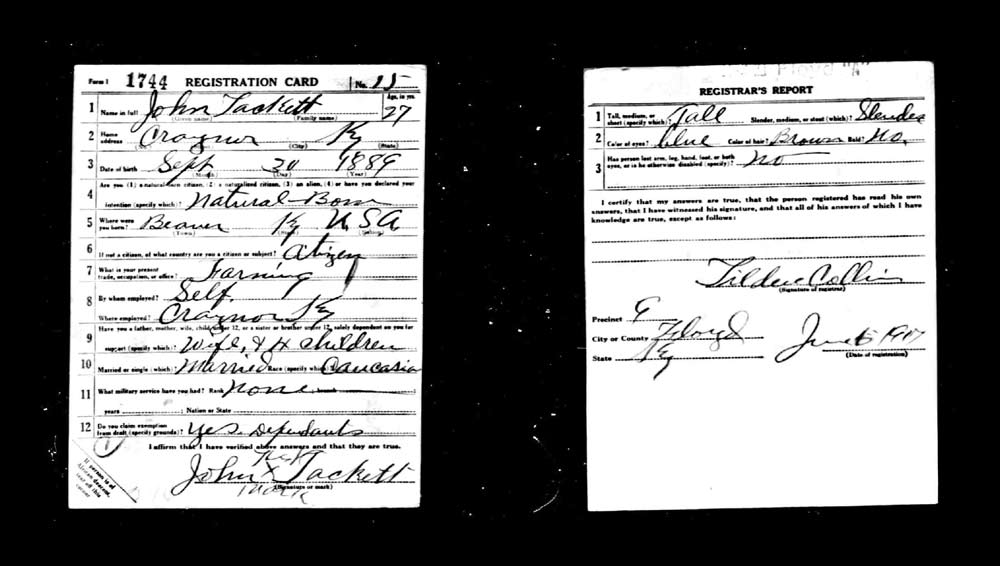 Form 1 1744 REGISTRATION CARD No. 15
1 Name in full John Tackett Age, in yrs. 27
(Given name) (Family name)
2 Home address Craynor Ky
(No.) (City) (State)
3 Date of birth Sept 30 1889
(Month) (Day) (Year)
4 Are you (1) a natural-born citizen, (2) a naturalized citizen, (3) an alien, (4) or have you declared your
intention (specify which)? Natural-Born
5 Where were you born? Beaver Ky U.S.A
(Town) (State) (Nation)
6 If not a citizen, of what country are you a citizen or subject? Citizen
7 What is your present trade, occupation, or office? Farming
8 By whom employed? Self
Where employed? Craynor Ky
9 Have you a father, mother, wife, child under 12, or a sister or brother under 12, solely dependent on you for
support (specify which)? Wife, & 4 children
10 Married or single (which)? Married Race (specify which)? Caucasian
11 What military service have you had? Rank None branch
years ; Nation or State
12 Do you claim exemption from draft (specify grounds)? Yes. Dependants
I affirm that I have verified above answers and that they are true.
John X Tackett
mark
(Signature or mark)
If person is of
African descent,
tear off this
corner
REGISTRAR'S REPORT
1 Tall, medium, or short (specify which)? Tall Slender, medium, or stout (which)? Slender
2 Color of eyes? blue Color of hair? Brown Bald? No.
3 Has person lost arm, leg, hand, foot, or both eyes, or is he otherwise disabled (specify)? no
I certify that my answers are true, that the person registered has read his own
answers, that I have witnessed his signature, and that all of his answers of which I have
knowledge are true, except as follows:
Tilden Collins
(Signature of registrar)
Precinct 9
City or County Floyd
State Ky
June 5 1917
(Date of registration)